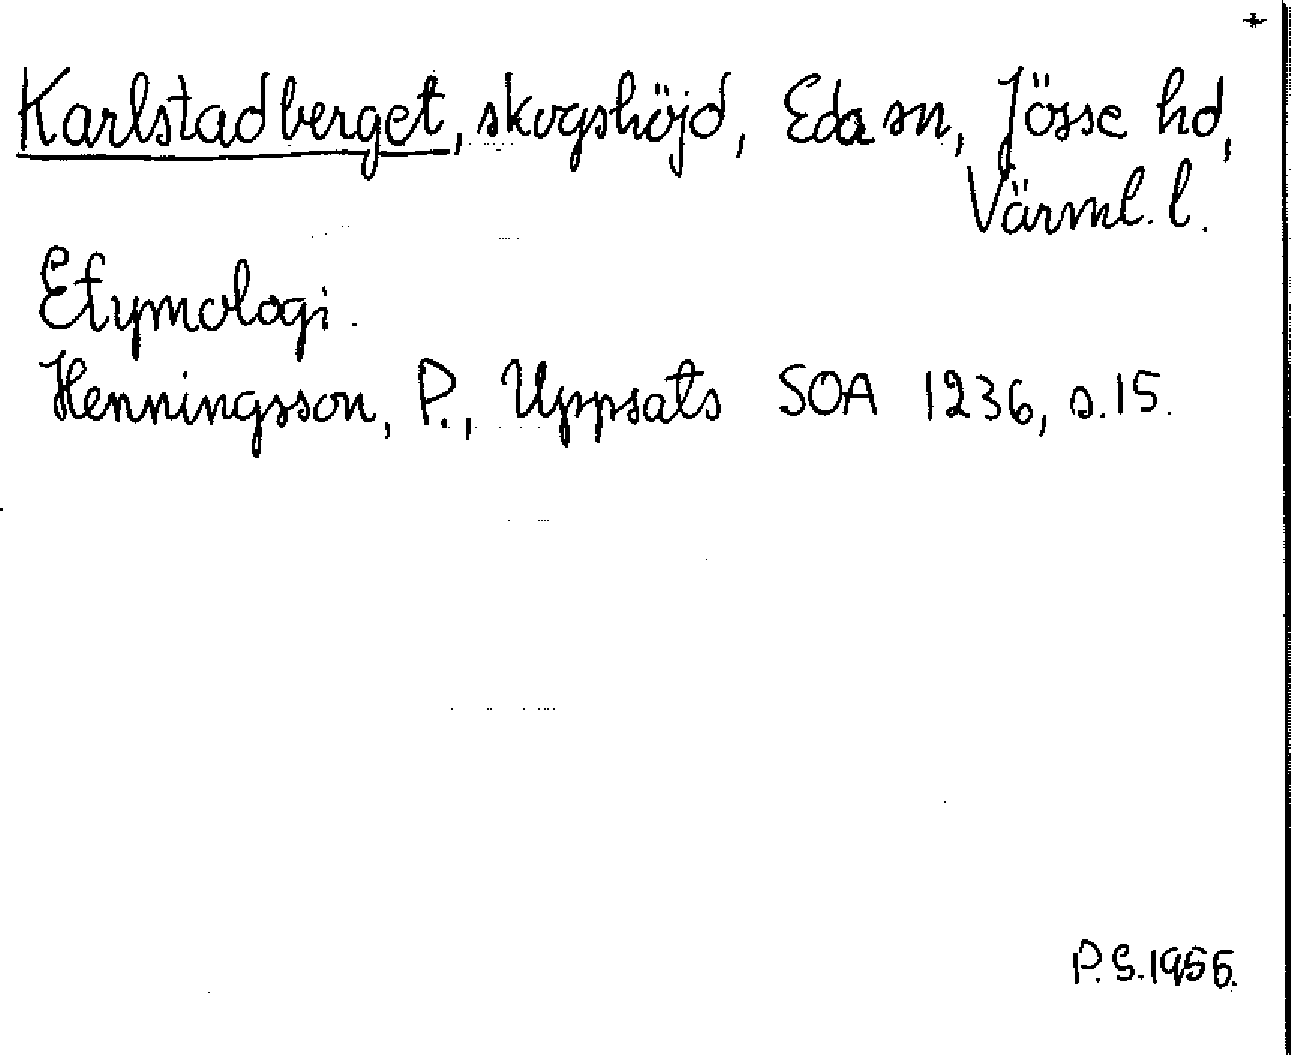 +
Karlstadberget, skogshöjd, Eda sn, Jösse hd,
Värml. l.
Etymologi.
Henningsson, P., Uppsats SOA 1236, s. 15.
P.S. 1956.